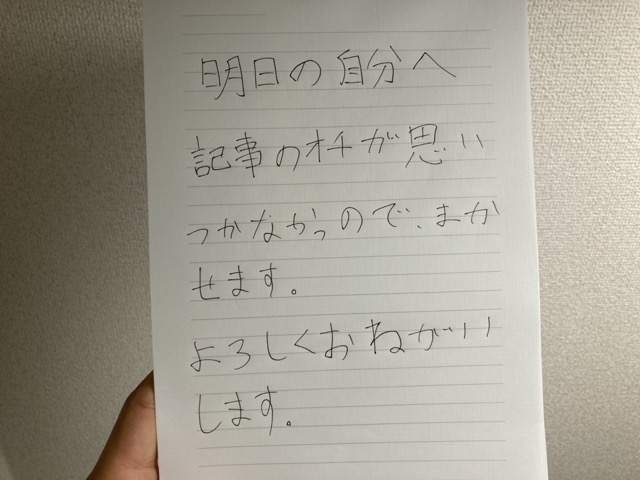 明日の自分へ
記事のオチが思い
つかなかっので、まか
せます。
よろしくおねがい
します。